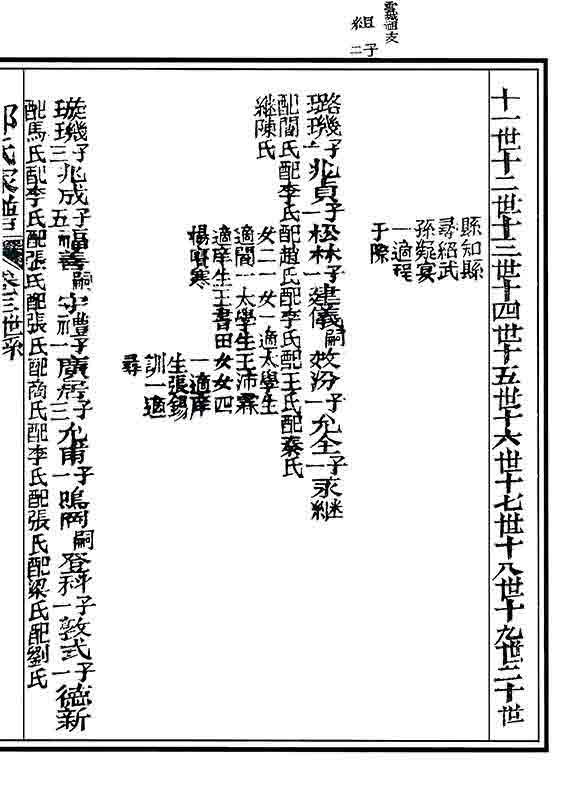 祖
子
二
十一世十二世十三世十四世十五世十六世十七世十八世十九世二十世
縣知縣
尋紹武
孫凝宴
一適程
于際
璐璣子一兆貞子一松林子一建儀嗣效汾子一允全子一永継
配閻氏配李氏配趙氏配李氏配王氏配秦氏
継陳氏
女二一女一適太學生
適閻一太學生王沛霖
適庠生王書田女女四
楊賓寒
一適庠
生張錫
訓一適
尋
璇璣子三兆成子五福善嗣守禮子一廣居子三允甫子一鳴岡嗣登科子一敦式子一德新
配馬氏配李氏配張氏配張氏配商氏配李氏配張氏配梁氏配劉氏
氏家譜 卷三世系